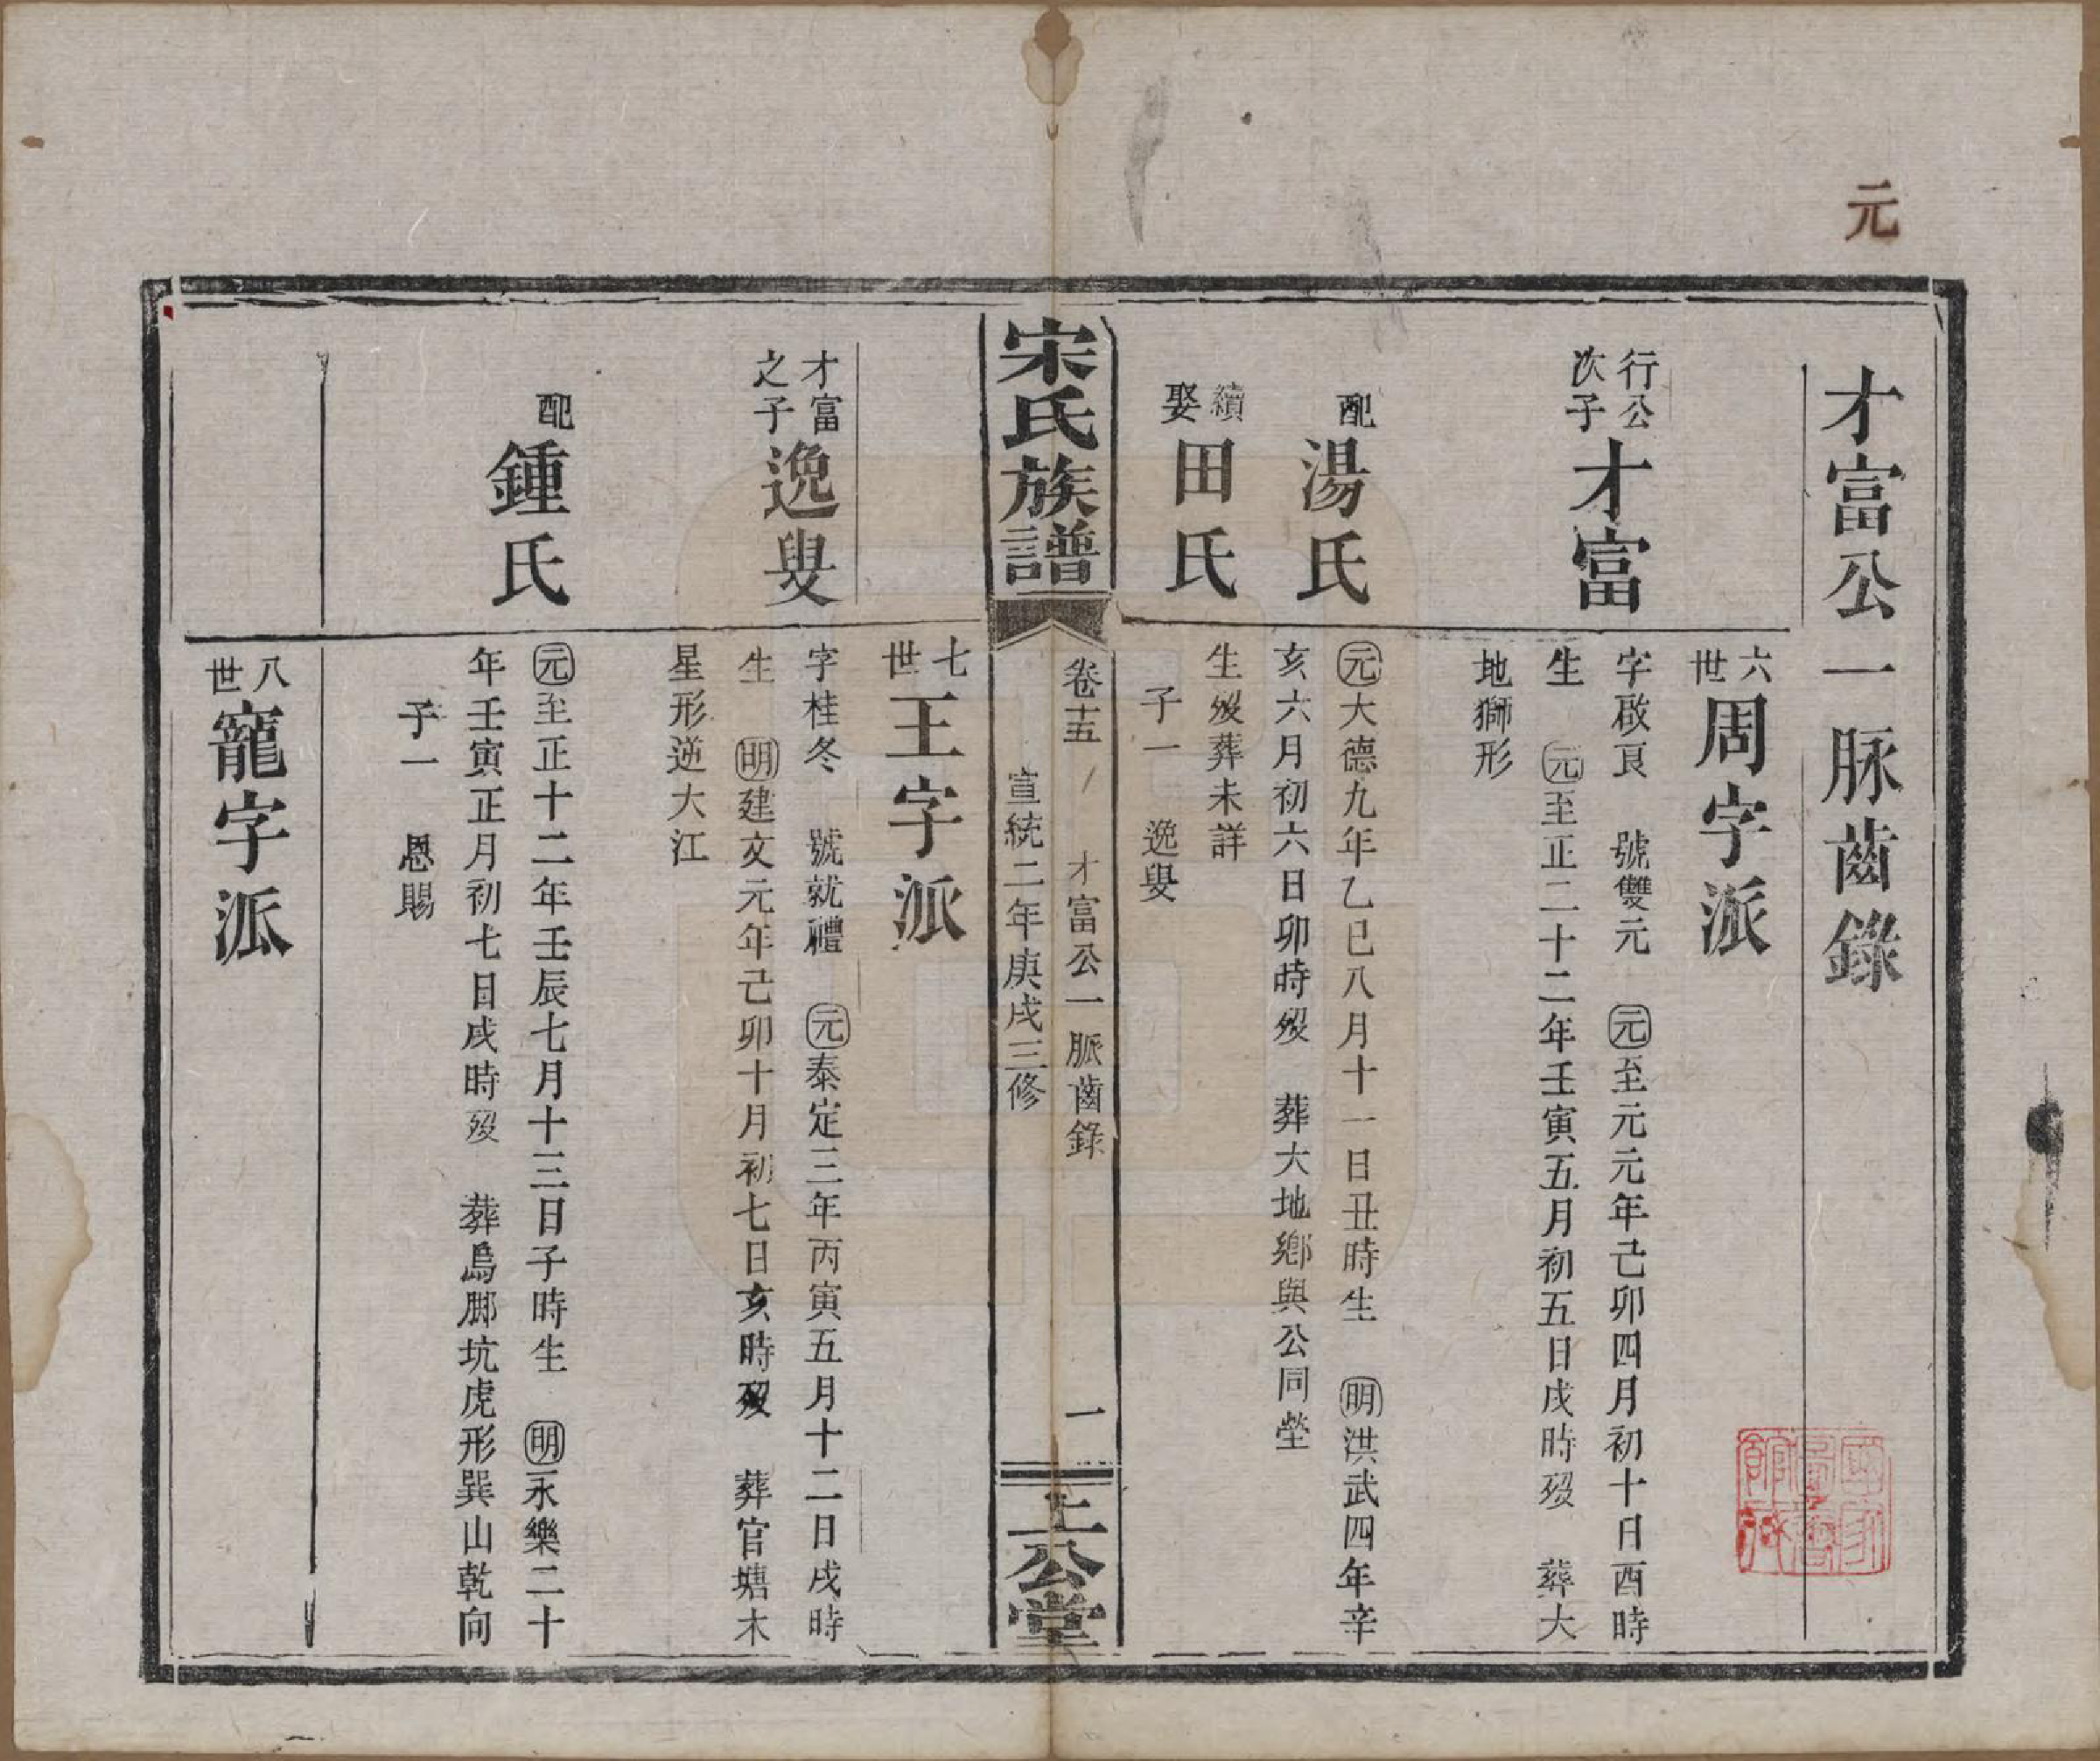 元
才富公一脉齒錄
六世周字派
行公次子才富
字啟良　號雙元　元至元元年己卯四月初十日酉時
生　元至正二十二年壬寅五月初五日戌時歿　葬大
地獅形
配湯氏
元大德九年乙巳八月十一日丑時生　明洪武四年辛
亥六月初六日卯時歿　葬大地鄉與公同塋
續娶田氏
生歿葬未詳
子一　逸叟
宋氏族譜
卷十五　才富公一脈齒錄　一
宣統二年庚戌三修
上公堂
七世王字派
才富之子逸叟
字桂冬　號就禮　元泰定三年丙寅五月十二日戌時
生　明建文元年己卯十月初七日亥時歿　葬官塘木
星形逆大江
配鍾氏
元至正十二年壬辰七月十三日子時生　明永樂二十
年壬寅正月初七日戌時歿　葬烏腳坑虎形巽山乾向
子一　恩賜
八世寵字派